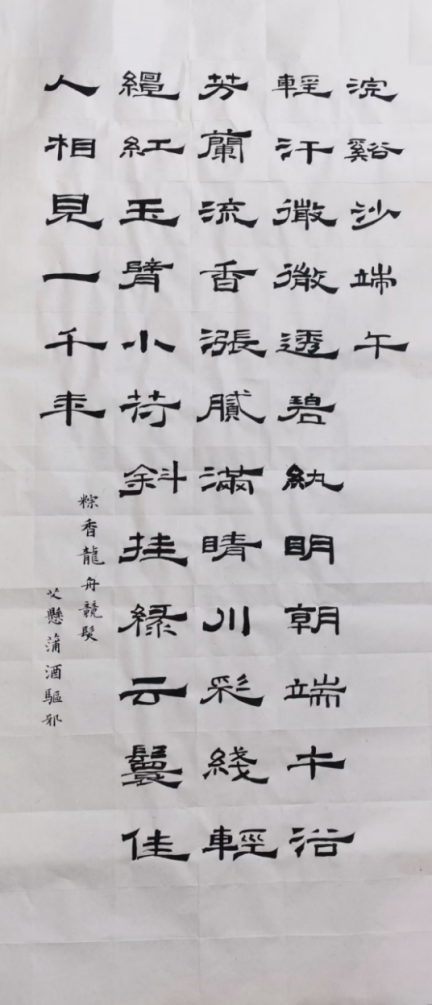 浣谿沙端午
輕汗微微透碧紈明朝端午浴
芳蘭流香漲膩滿晴川彩綫輕
纒紅玉臂小荷斜挂緑云鬟佳
人相見一千年
粽香龍舟競髮
艾懸蒲酒驅邪